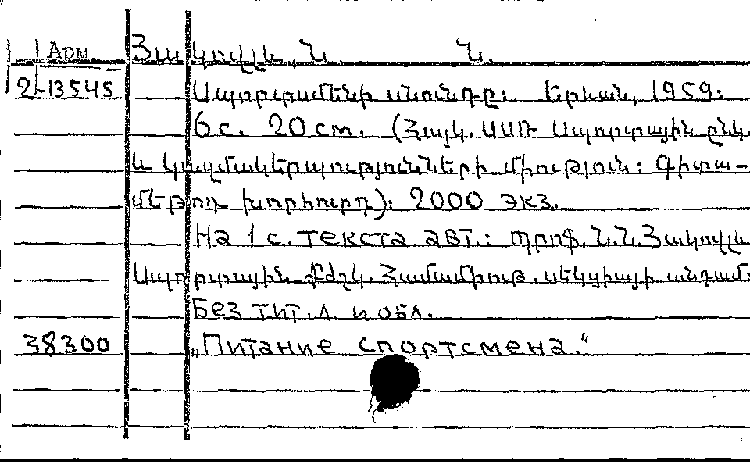 Арм Յակովլև, Ն. Ն.
2-13545 Սպորտսմենի սնունդը: Երևան, 1959:
6 с. 20 см. (Հայկ. ՍՍՌ Սպորտային ընկ.
և կազմակերպությունների միություն: Գիտա-
մեթոդ. խորհուրդ): 2000 экз.
На 1 с. текста авт.: պրոֆ. Ն. Ն. Յակովլև
Սպորտային բժշկ. Համամիութ. սեկցիայի անդամ
Без тит. л. и обл.
38300 „Питание спортсмена."